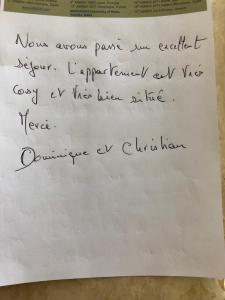 Nous avons passé un excellent
séjour. L'appartement est très
cosy et très bien situé.
Merci.
Dominique et Christian